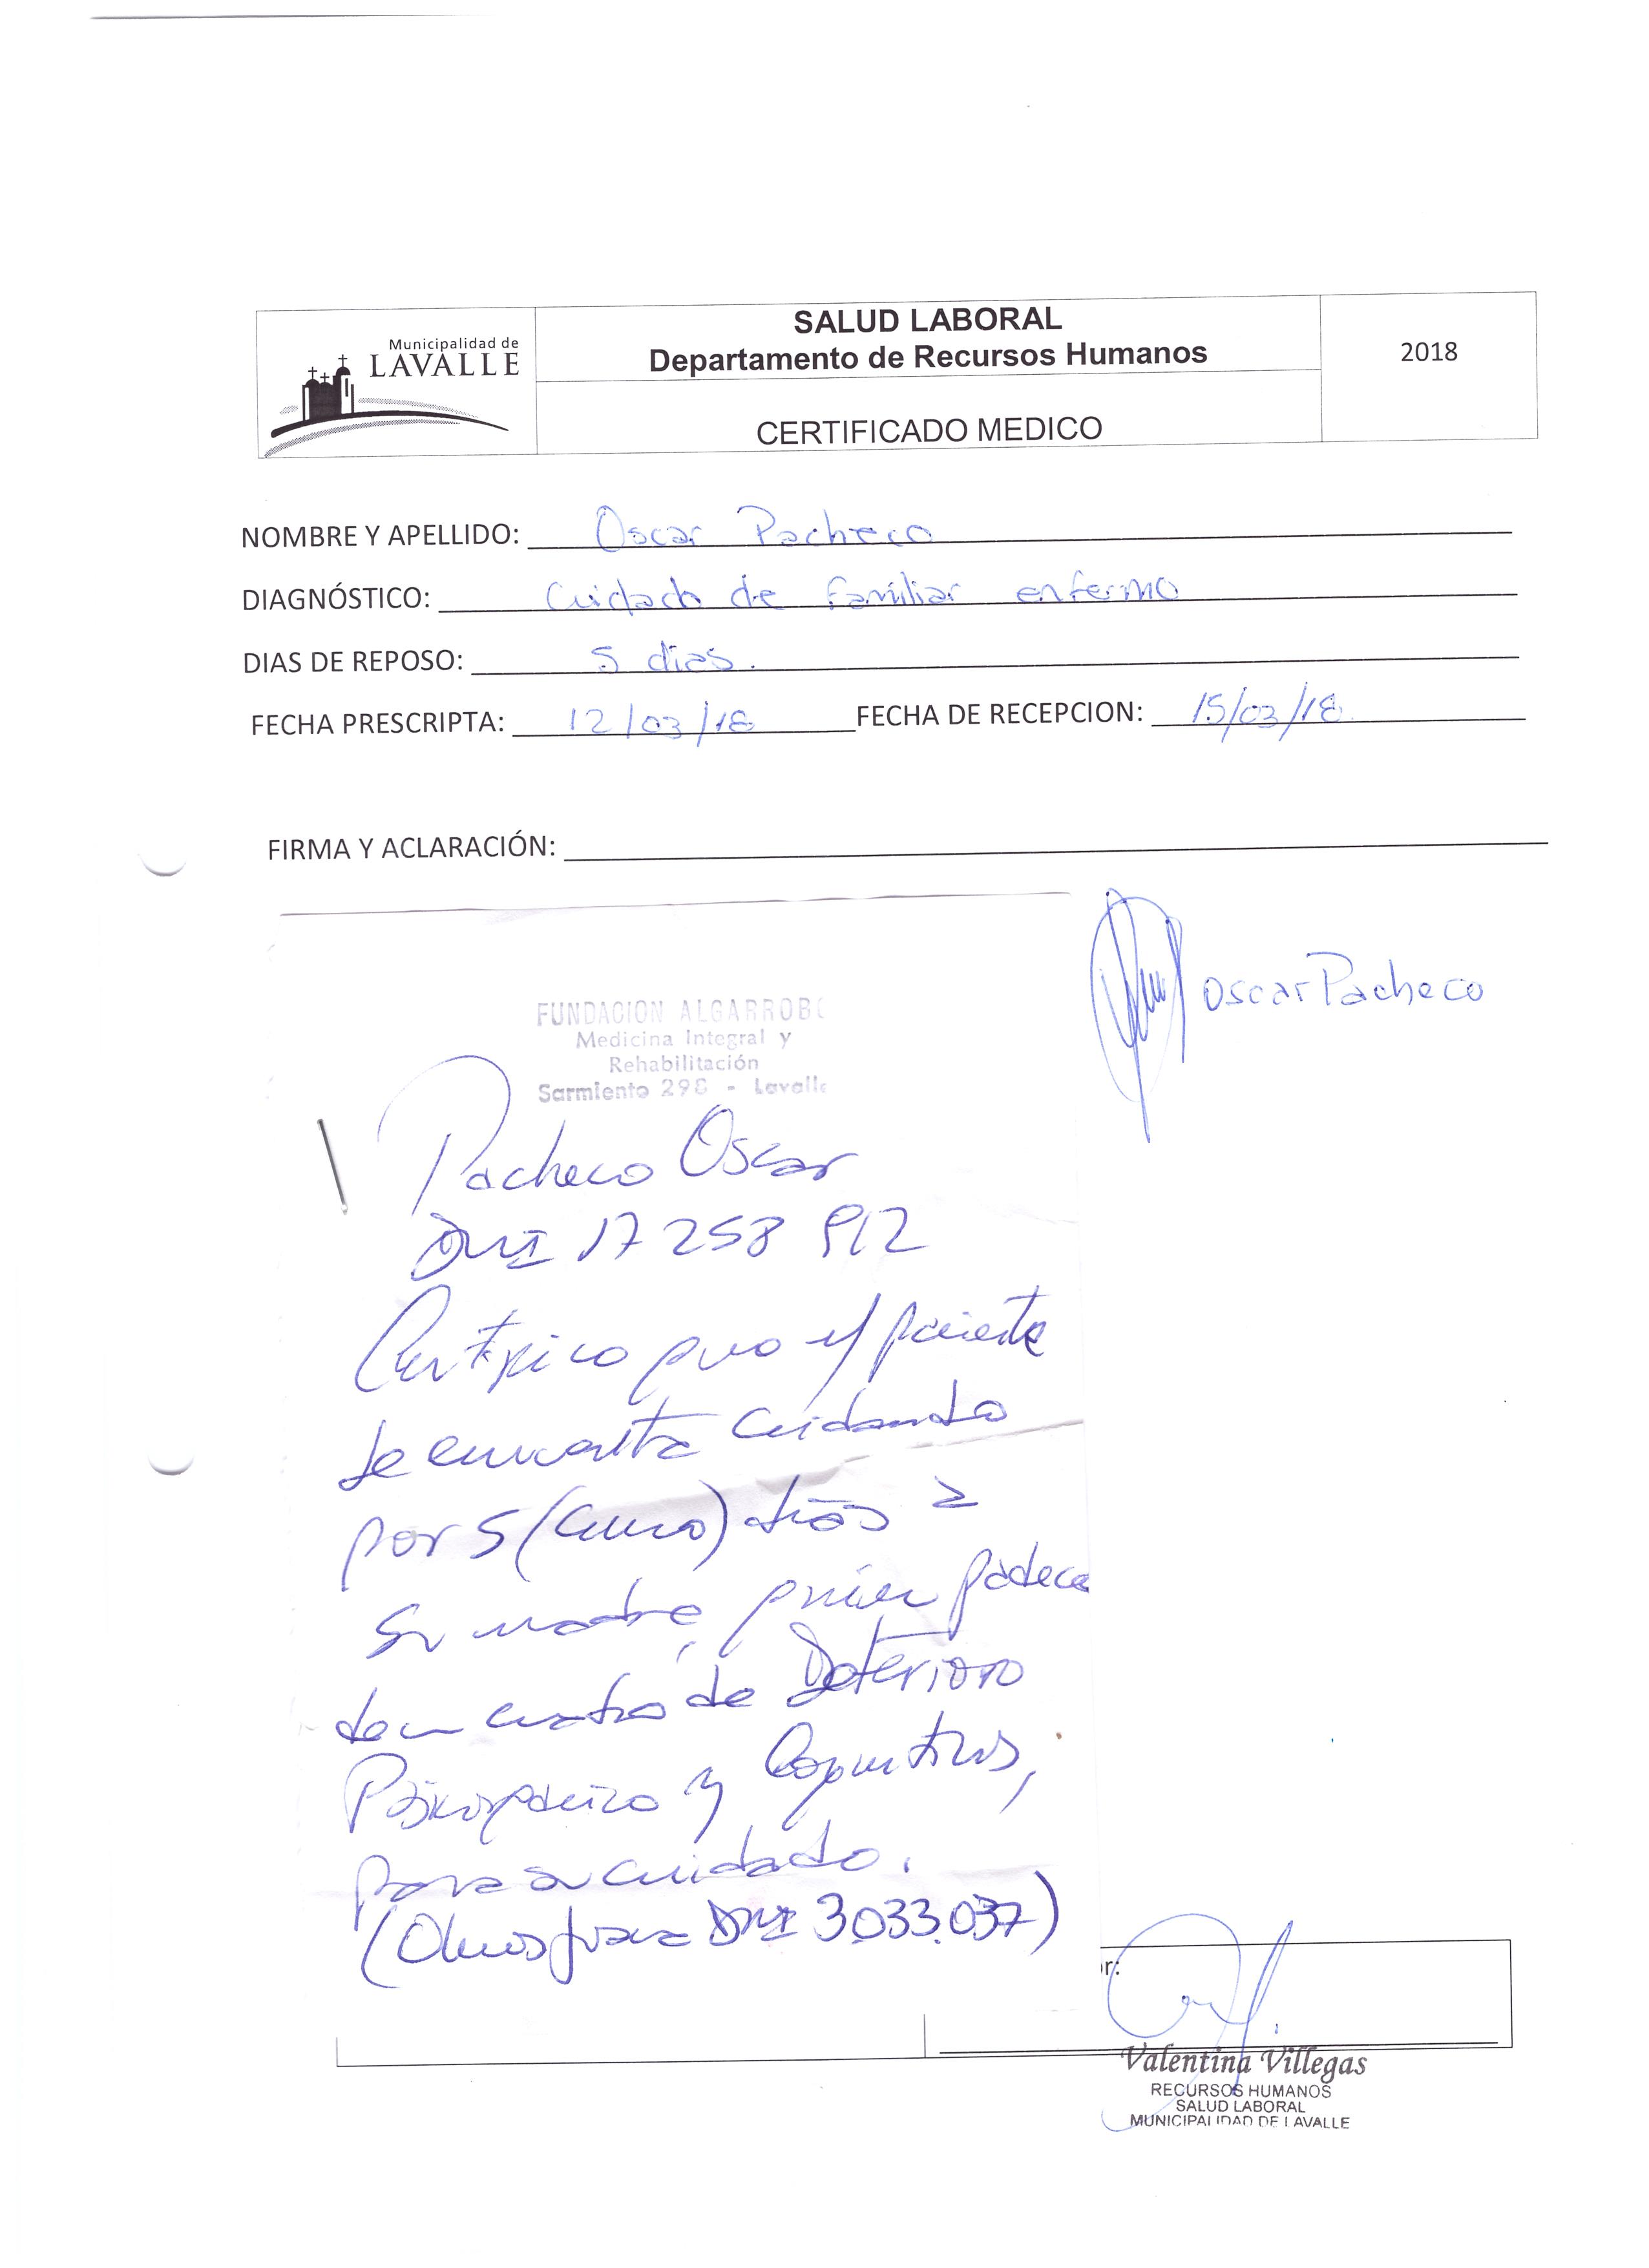 Municipalidad de
LAVALLE
SALUD LABORAL
Departamento de Recursos Humanos
CERTIFICADO MEDICO
2018
NOMBRE Y APELLIDO: Oscar Pacheco
DIAGNÓSTICO: Cuidado de familiar enfermo
DIAS DE REPOSO: 5 dias.
FECHA PRESCRIPTA: 12/03/18 FECHA DE RECEPCION: 15/03/18
FIRMA Y ACLARACIÓN:
Oscar Pacheco
FUNDACION ALGARROBO
Medicina Integral y
Rehabilitación
Sarmiento 298 - Lavalle
Pacheco Oscar
DNI 17 258 912
Certifico que el paciente
se encuentra cuidando
por 5 (cinco) dias a
su madre, quien padece
de un cuadro de Deterioro
Psicorgánico y Cognitivo,
para su cuidado.
(Olmos Juana DNI 3.033.037)
r:
Valentina Villegas
RECURSOS HUMANOS
SALUD LABORAL
MUNICIPALIDAD DE LAVALLE